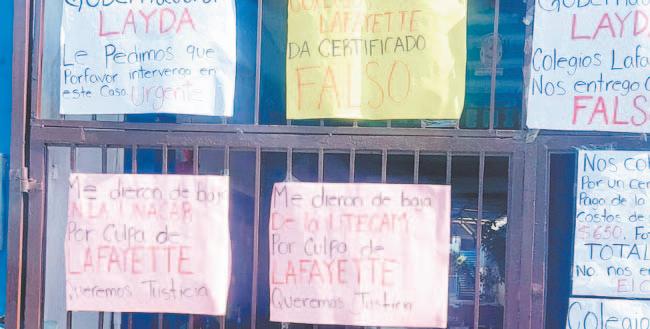 Gobernadora
LAYDA
Le Pedimos que
Porfavor intervenga en
este Caso Urgente
LAFAYETTE
DA CERTIFICADO
FALSO
LAYD
Colegios Lafa
Nos entrego C
FALS
Me dieron de baja
Por Culpa de
LAFAYETTE
Queremos Justicia
Me dieron de baja
De la UTECAM
Por Culpa de
LAFAYETTE
Queremos Justicia
Nos co
Por un cer
Pago de la
Costos de
$650. Fo
TOTAL
No nos e
El C
Colegio